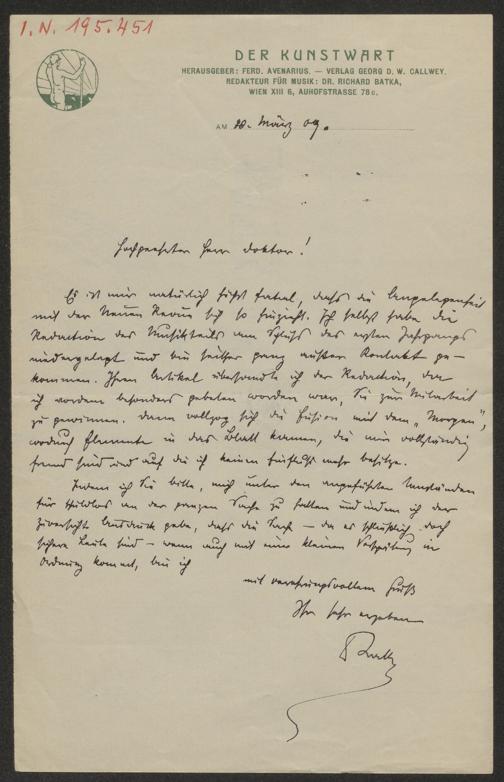 I.N. 195.451
DER KUNSTWART
HERAUSGEBER: FERD. AVENARIUS. — VERLAG GEORG D. W. CALLWEY.
REDAKTEUR FÜR MUSIK: DR. RICHARD BATKA,
WIEN XIII 6, AUHOFSTRASSE 78c.
AM 28. März 09.
Hochgeehrter Herr Doktor!
Es ist mir natürlich höchst fatal, dass die Angelegenheit
mit der Neuen Revue sich so hinzieht. Ich selbst habe die
Redaction des Musikteils am Schluss des ersten Jahrgangs
niedergelegt und bin seither ganz ausser Kontakt ge-
kommen. Ihren Artikel übersandte ich der Redaction, der
ich vordem besonders gebeten worden war, Sie zur Mitarbeit
zu gewinnen. Dann vollzog sich die Fusion mit dem „Morgen",
wodurch Elemente in das Blatt kamen, die mir vollständig
fremd sind und auf die ich keinen Einfluss mehr besitze.
Indem ich Sie bitte, mich unter den angeführten Umständen
für schuldlos an der ganzen Sache zu halten und indem ich der
Zuversicht Ausdruck gebe, dass die Sache — da es schliesslich doch
sichere Leute sind — wenn auch mit einer kleinen Verspätung in
Ordnung kommt, bin ich
mit verehrungsvollem Gruß
Ihr sehr ergebener
Batka